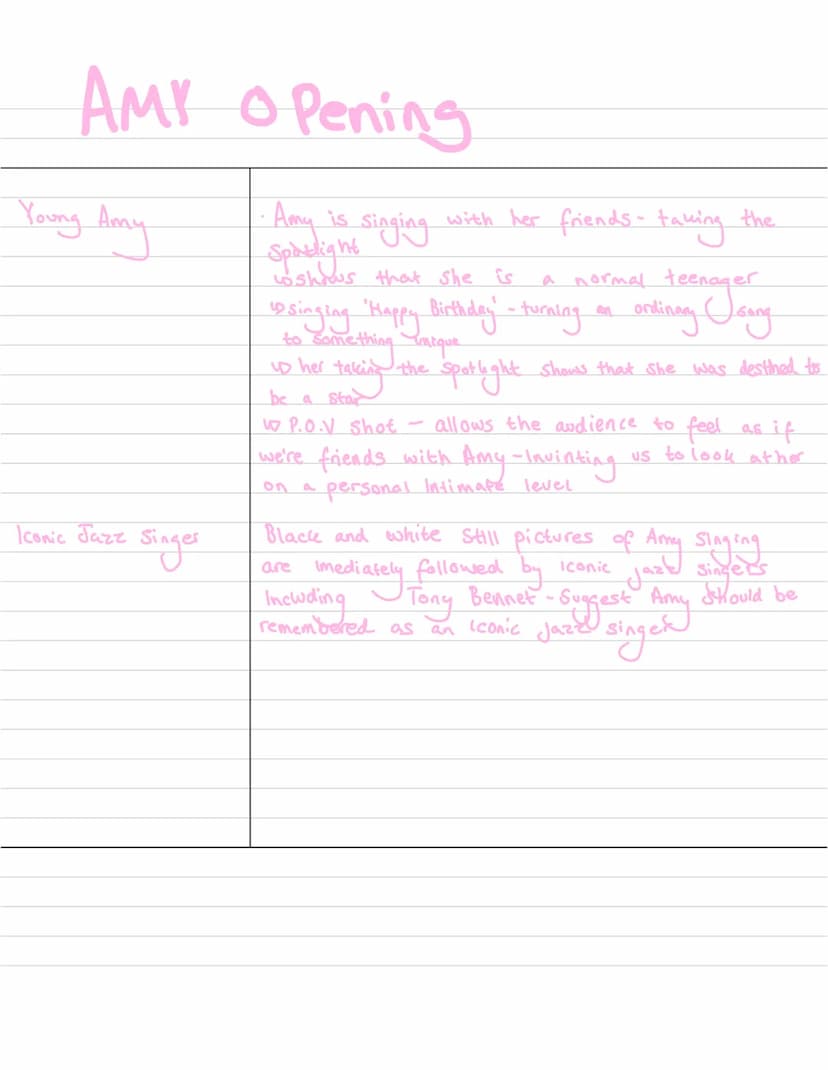 Amy Opening
Young Amy
· Amy is singing with her friends - taking the
spotlight
↳ shows that she is a normal teenager
↳ singing 'Happy Birthday' - turning an ordinary song
to something unique
↳ her taking the spotlight shows that she was destined to
be a star
↳ P.O.V shot - allows the audience to feel as if
we're friends with Amy - Invinting us to look at her
on a personal intimate level
Iconic Jazz Singer
Black and white still pictures of Amy Singing
are imediately followed by iconic jazz singers
Including Tony Bennet - Suggest Amy should be
remembered as an iconic jazz singer